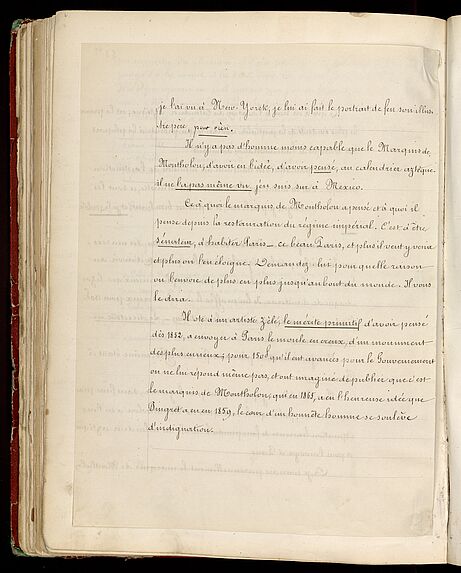 je l'ai vu à New-Yorck, je lui ai fait le portrait de feu son illus
tre père, pour rien.
Il n'y a pas d'homme moins capable que le Marquis de
Montholon, d'avoir eu l'idée, d'avoir pensé, au calendrier aztèque
il ne l'a pas même vu, j'en suis sur à Mexico.
Ce à quoi le marquis de Montholon a pensé et à quoi il
pense depuis la restauration du régime impérial. C'est d'être
sénateur, d'habiter Paris — ce beau Paris, et plus il veut y venir
et plus on l'en éloigne. Demandez-lui pour quelle raison
on l'envoie de plus en plus jusqu'au bout du monde. Il vous
le dira.
Il ote à un artiste zélé, le mérite primitif d'avoir pensé
dès 1852, a envoyer à Paris le moule en creux, d'un monument
des plus curieux; pour 150f qu'il ont avancés pour le Gouvernement
on ne lui répond même pas, et ont imaginé de publier que c'est
le marquis de Montholon, qui en 1865, a eu l'heureuse idée que
Pingret a eu en 1859, le cœur d'un honnête homme se soulève
d'indignation.